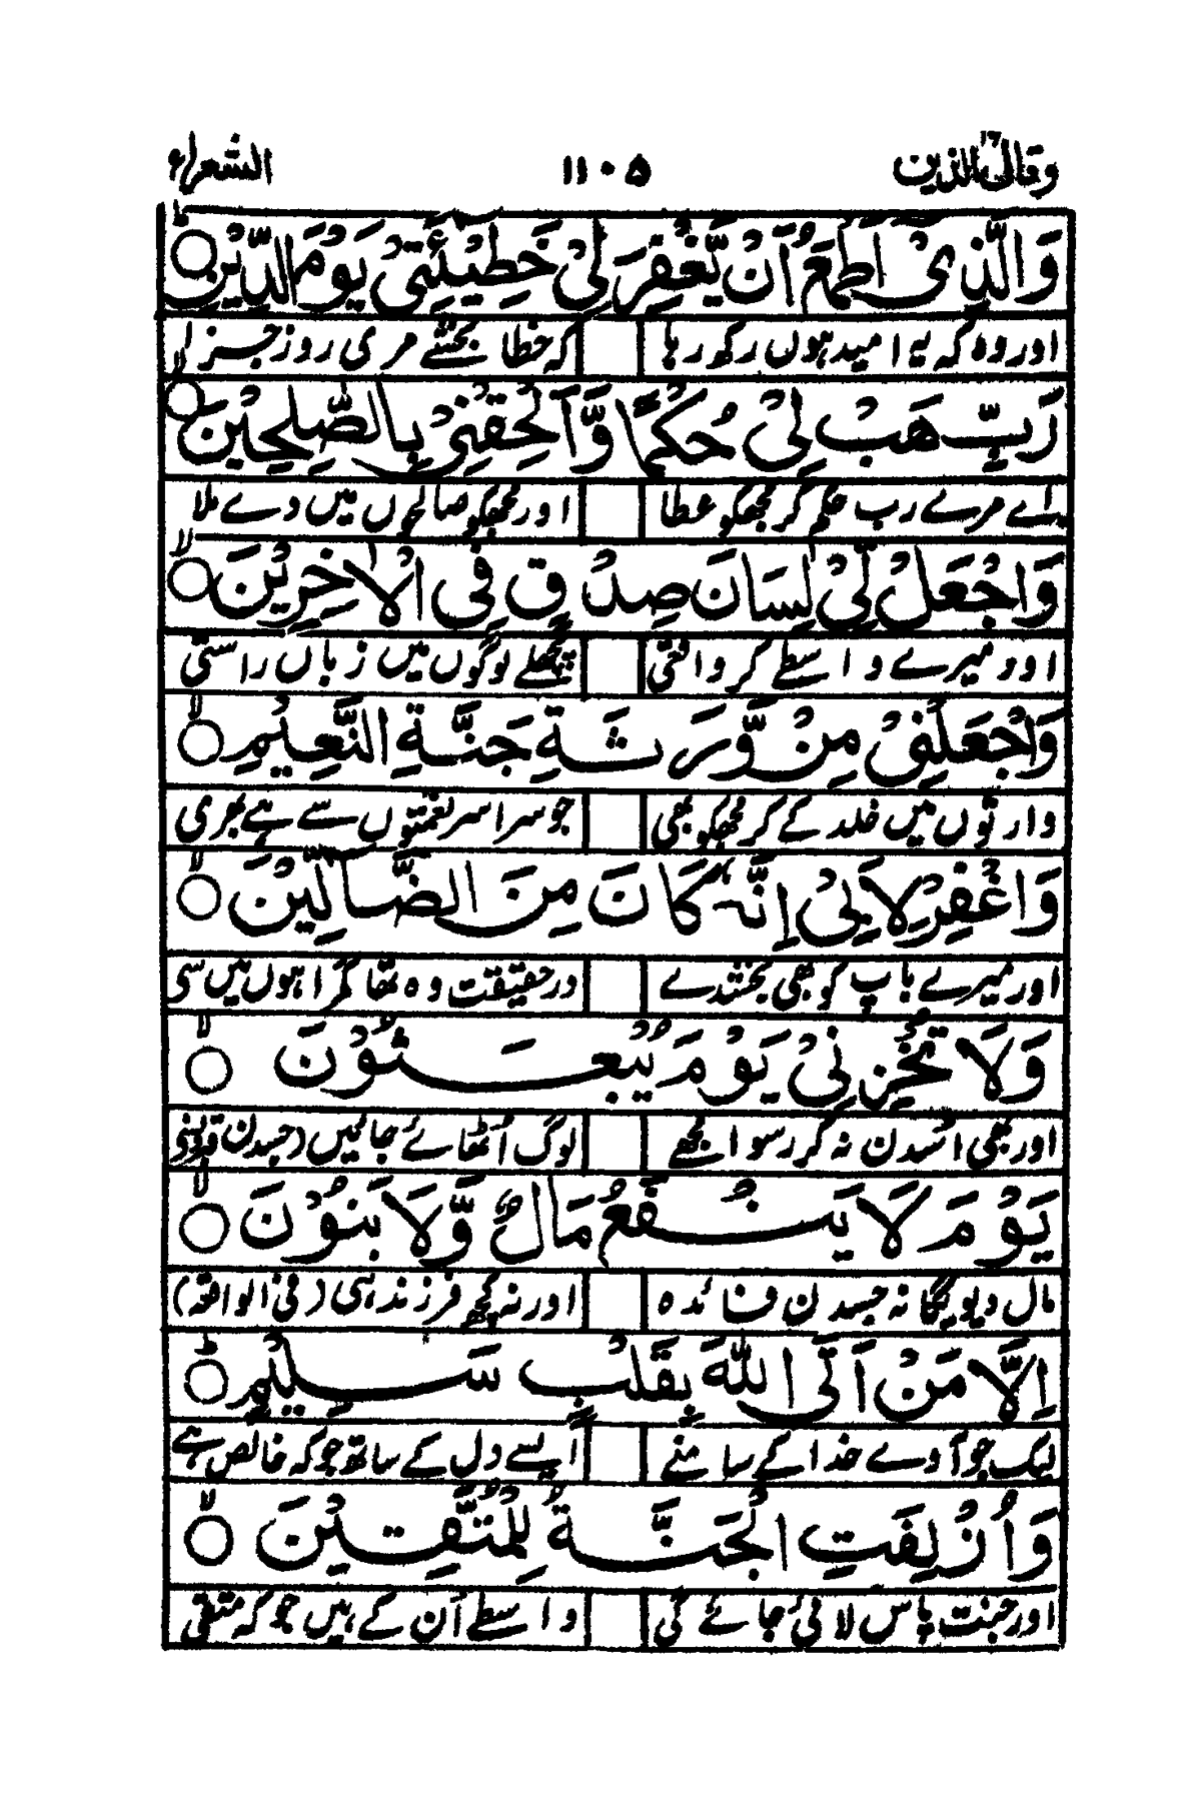 وقال الذین ۱۱۰۵ الشعراء
وَالَّذِیْۤ اَطْمَعُ اَنْ یَّغْفِرَ لِیْ خَطِیْٓئَتِیْ یَوْمَ الدِّیْنِ ۝ؕ
اور وہ کہ یہ امید ہوں رکھ رہا کہ خطا بخشے مری روز جزا
رَبِّ هَبْ لِیْ حُكْمًا وَّاَلْحِقْنِیْ بِالصّٰلِحِیْنَ ۝ۙ
اے مرے رب حکم کر مجھکو عطا اور مجھکو صالحوں میں دے ملا
وَاجْعَلْ لِّیْ لِسَانَ صِدْقٍ فِی الْاٰخِرِیْنَ ۝ۙ
اور میرے واسطے کر واقعی پچھلے لوگوں میں زباں راستی
وَاجْعَلْنِیْ مِنْ وَّرَثَةِ جَنَّةِ النَّعِیْمِ ۝ۙ
وارثوں میں خلد کے کر مجھکو بھی جو سراسر نعمتوں سے ہے بھری
وَاغْفِرْ لِاَبِیْۤ اِنَّهٗ كَانَ مِنَ الضَّآلِّیْنَ ۝ۙ
اور میرے باپ کو بھی بخشدے درحقیقت وہ تھا گمراہوں میں سی
وَلَا تُخْزِنِیْ یَوْمَ یُبْعَثُوْنَ ۝ۙ
اور بھی اسدن نہ کر رسوا مجھے لوگ اُٹھائے جائیں (جسدن قبر سے)
یَوْمَ لَا یَنْفَعُ مَالٌ وَّلَا بَنُوْنَ ۝ۙ
مال دیویگا نہ جسدن فائدہ اور نہ کچھ فرزند ہی (فی الواقعہ)
اِلَّا مَنْ اَتَی اللّٰهَ بِقَلْبٍ سَلِیْمٍ ۝ؕ
لیک جو آوے خدا کے سامنے ایسے دل کے ساتھ جو کہ خالص ہے
وَاُزْلِفَتِ الْجَنَّةُ لِلْمُتَّقِیْنَ ۝ۙ
اور جنت پاس لائی جائے گی واسطے اُن کے ہیں جو کہ متقی